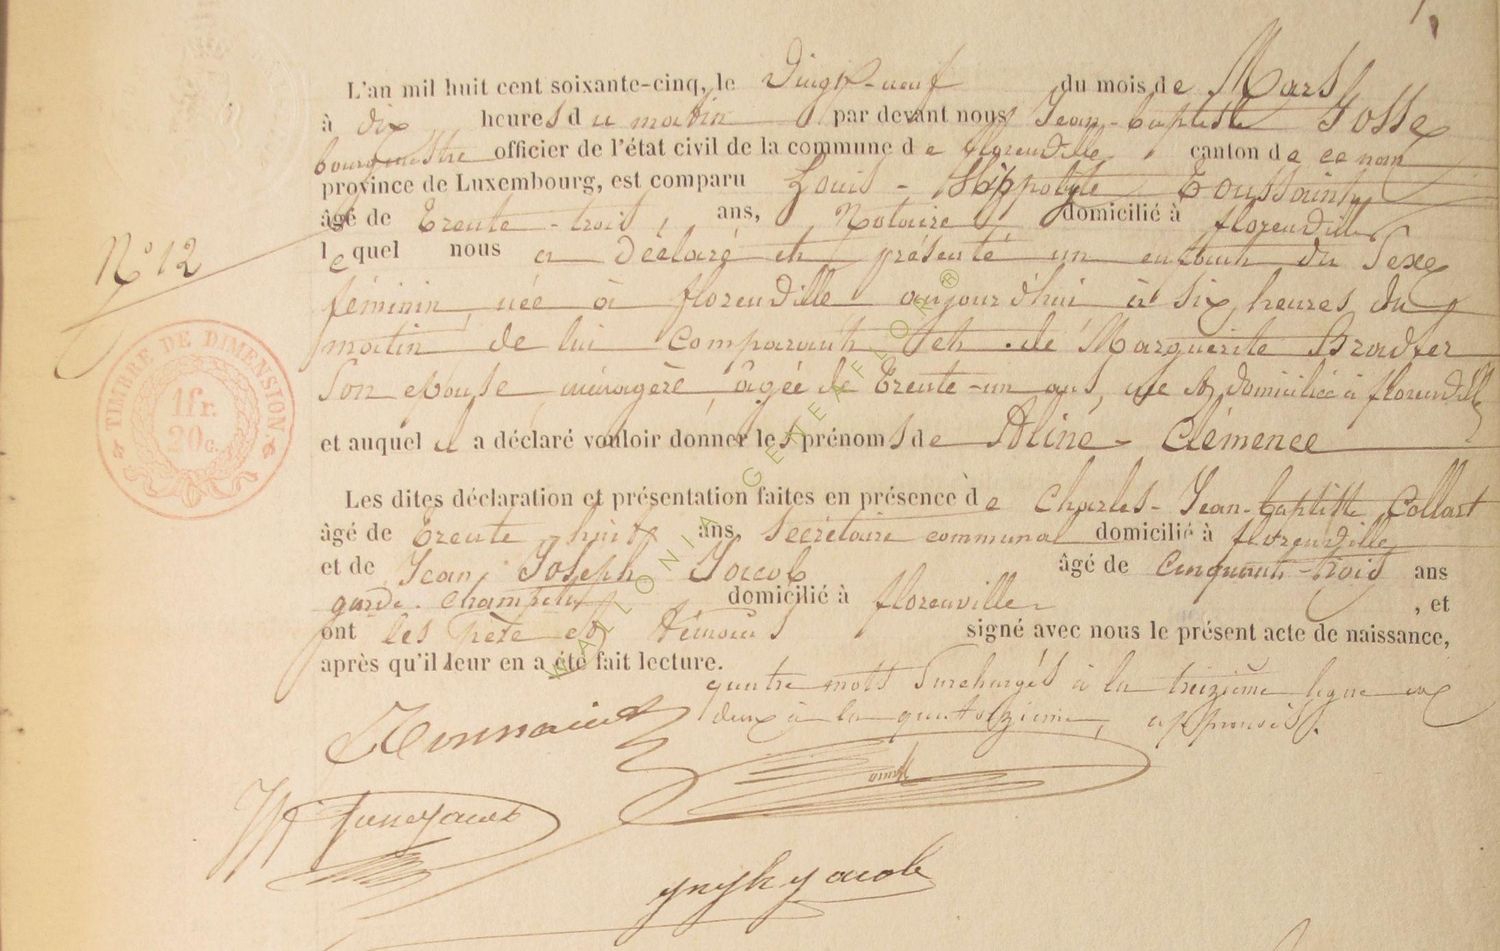 L'an mil huit cent soixante-cinq, le Vingt-neuf du mois de Mars
à dix heures du matin par devant nous Jean-baptiste Josse
bourgmestre officier de l'état civil de la commune de florenville canton de ce nom
province de Luxembourg, est comparu Louis-Hippolyte Toussaint
âgé de Trente-trois ans, Notaire domicilié à florenville
N° 12
lequel nous a déclaré et présenté un enfant du Sexe
féminin, née à florenville aujourd'hui à six heures du
matin de lui Comparant et de Marguerite Bradfer
Son epouse ménagère, âgée de Trente-un ans, née et domiciliée à florenville
et auquel il a déclaré vouloir donner les prénoms de Aline-Clémence
Les dites déclaration et présentation faites en présence de Charles-Jean-baptiste Collart
âgé de Trente-huit ans Secrétaire communal domicilié à florenville
et de Jean Joseph Jacob âgé de Cinquante-trois ans
garde champêtre domicilié à florenville , et
ont les père et témoins signé avec nous le présent acte de naissance,
après qu'il leur en a été fait lecture.
quatre mots Surchargés à la treizième ligne et
deux à la quatorzième, approuvés.
TIMBRE DE DIMENSION
1 fr.
20 C.
WALLONIA GENEAFLOR ®